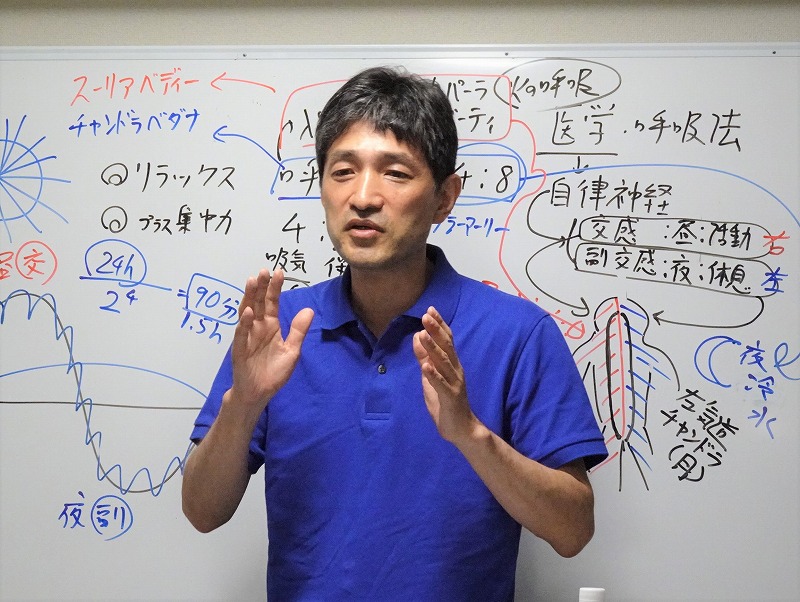 スーリアベディー
チャンドラベダナ
リラックス
プラス集中力
24h
2⁴
=90分
1.5h
夜 副
交
パーラ
の呼吸
ティ
: 8
4 :
吸気
医学・呼吸法
自律神経
交感:昼:活動 右
副交感:夜:休息 左
夜
冷
水
左気道
チャンドラ
(月)